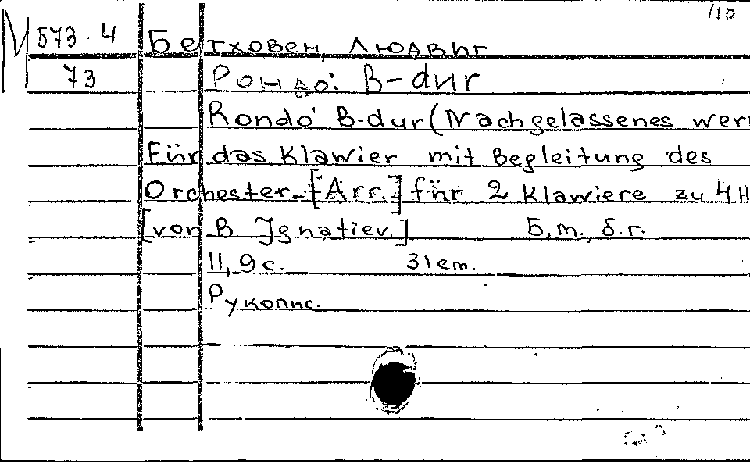 110
М 573.4 Бетховен, Людвиг
73 Рондо: B-dur
Rondo B-dur (Nachgelassenes wer
Für das Klawier mit Begleitung des
Orchester.-[Arr.] für 2 Klawiere zu 4 H
[von B Ignatiev] Б.m., б.г.
11,9 с. 31 em.
Рукопис.